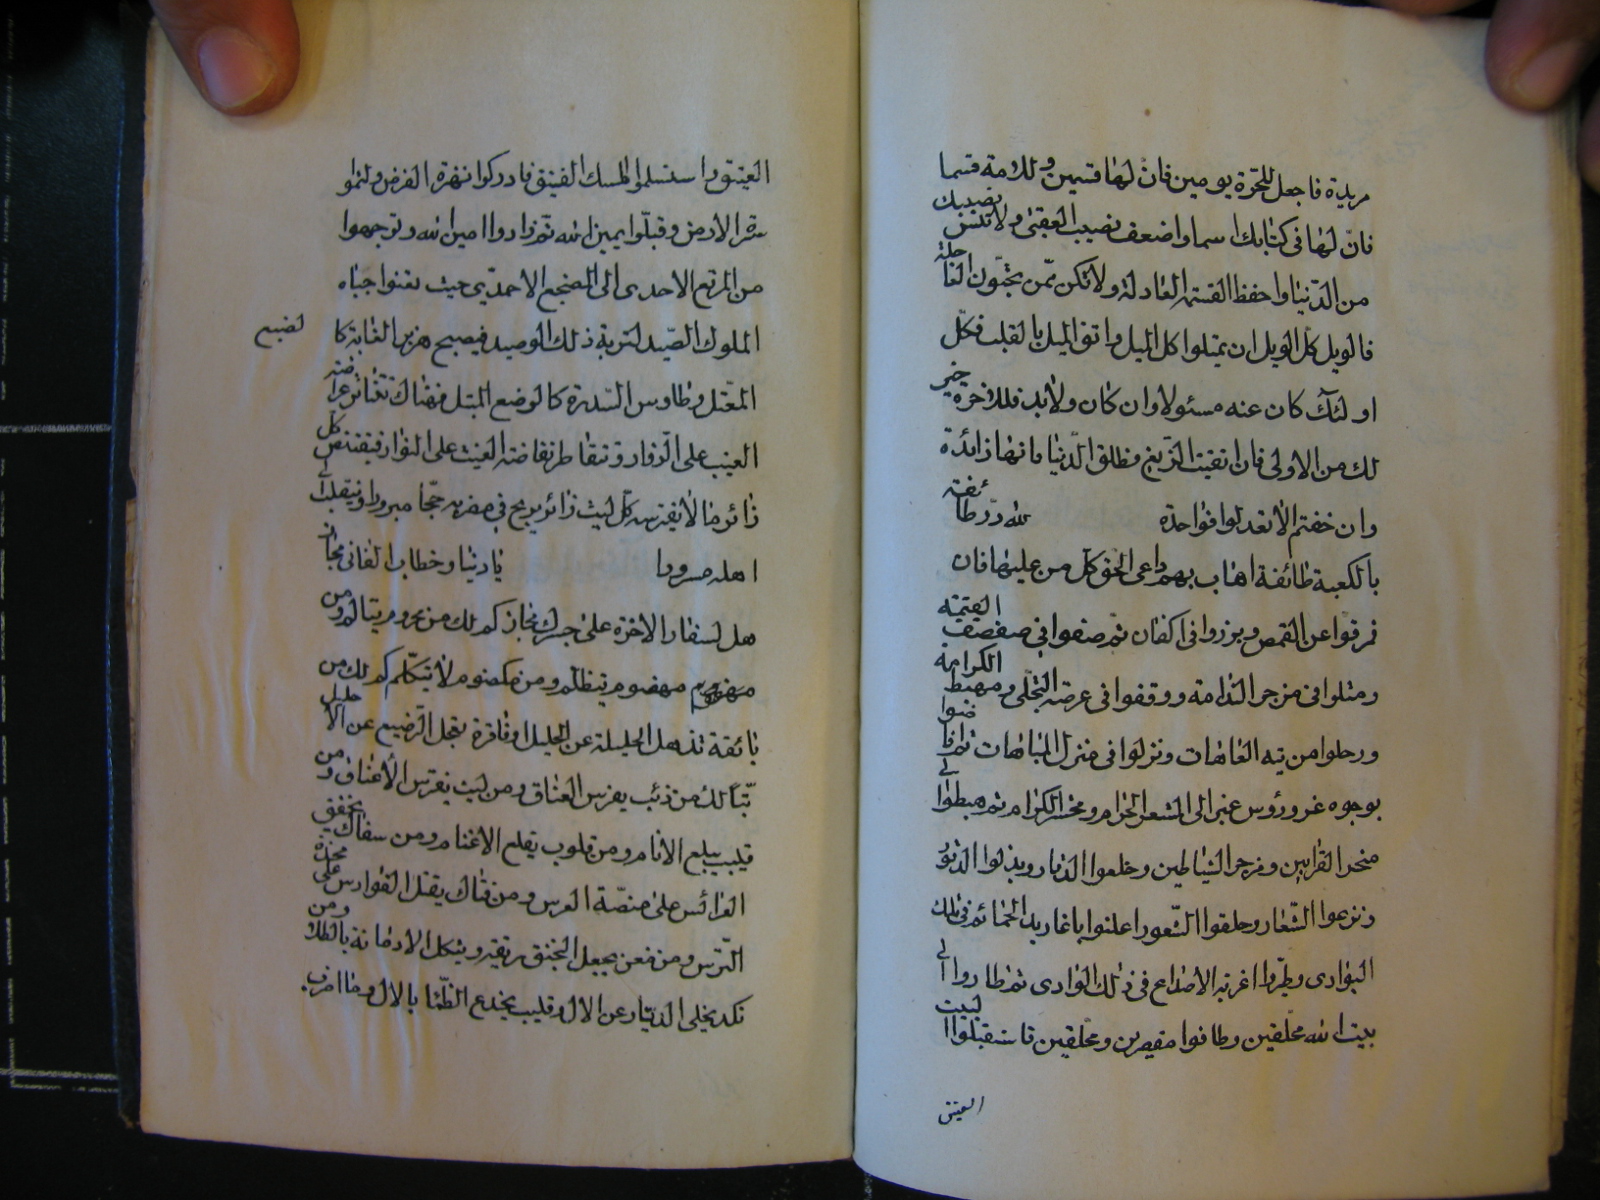 مريدة فاجعل للحرة يومين فان لها قسمين وللامة قسما
فان لها في كتابك اسما واضعف نصيب العقبى ولا تنس نصيبك
من الدنيا واحفظ القسمة العادلة ولا تكن ممن يحبون العاجلة
فالويل كل الويل ان يميلوا كل الميل واتق الميل بالقلب فكل
اولئك كان عنه مسئولا وان كان ولابد فللاخرة خير
لك من الاولى فان اتقيت الزيغ فطلق الدنيا فانها زائدة
وان خفتم الا تعدلوا فواحدة لله در طائفة
بالكعبة طائفة اهاب بهم داعي الحق كل من عليها فان
فرقوا عن القمص وبرزوا في اكفان ثم صفوا في صفصف القيمة
ومثلوا في مزجر الندامة ووقفوا في عرصة التجلي ومهبط الكرامة
ورحلوا من تيه العاهات ونزلوا في منزل المباهات ثم افاضوا
بوجوه غر ورؤس غبر الى المشعر الحرام ومحشر الكرام ثم هبطوا الى
منحر القرابين ومزجر الشياطين وخلعوا الدثار وبذلوا الدثور
ونزعوا الشعار وحلقوا الشعور واعلنوا باغاريد الحمائم في تلك
البوادي وطيروا اغربة الاصداغ في ذلك الوادي ثم طاروا الى
بيت الله محلقين وطافوا مقصرين ومحلقين فاستقبلوا البيت
العتيق
العتيق واستسلموا المسك الفتيق فادركوا نهزة الفرض ولثموا
سرة الارض وقبلوا يمين الله ثم زاروا امين الله وتوجهوا
من المربع الاحدي الى المضجع الاحمدي حيث تعنوا جباه
الملوك الصيد لتربة ذلك الوصيد فيصبح هزبر الغابة كا
المعتل وطاوس السدرة كالوضع المبتل فهناك تتناثر عراضة
العيب على الزوار وتتقاطر نفاضة الغيث على النوار فيقتنص كل
زائر مالا يفترسه كل ليث زائر يربح في سفره حجا مبرورا وينقلب الى
اهله مسرورا يا دنيا وخطاب الفاني مجاز
هل لسفار الاخرة على جسرك مجاز كم لك من محروم يتالم ومن
مهضوم يتظلم ومن مكضوم لا يتكلم كم لك من
بائقة تذهل الحليلة عن الحليل وفاقرة تعجل الرضيع عن الاحليل
تبا لك من ذئب يفرس العناق ومن ليث يفرس الاعناق ومن
قليب يبلع الانام ومن قلوب يقلع الاغنام ومن سفاك يخفق
العرائس على منصة العرس ومن فتاك يقتل الفوارس على
الترس ومن
نكد يخلي الديار عن الال وقليب يخدع الظما بالال وما افرق